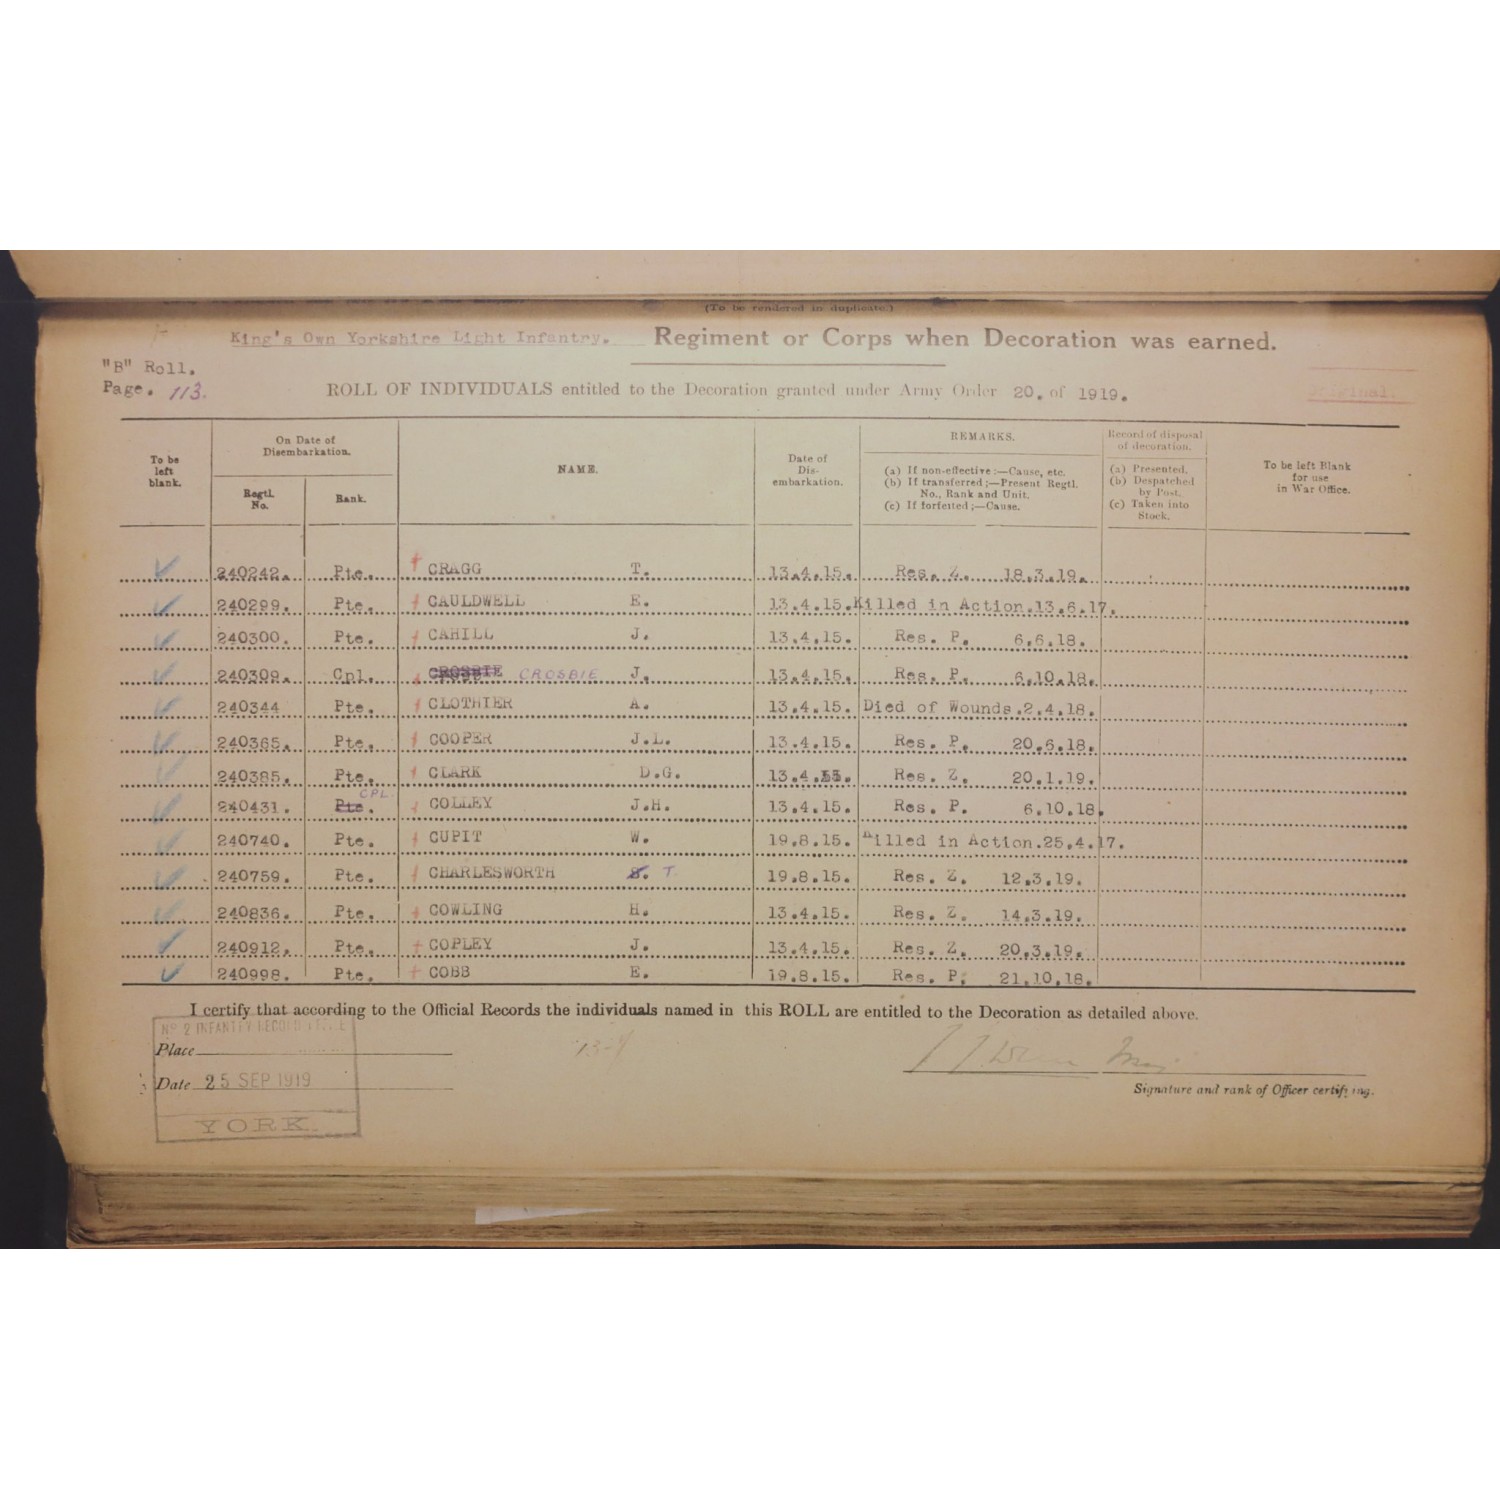 (To be rendered in duplicate.)
King's Own Yorkshire Light Infantry. Regiment or Corps when Decoration was earned.
"B" Roll.
Page. 113.
ROLL OF INDIVIDUALS entitled to the Decoration granted under Army Order 20. of 1919.
Original.
To be left blank.
On Date of Disembarkation.
Regtl. No.
Rank.
NAME.
Date of Dis-embarkation.
REMARKS.
(a) If non-effective:—Cause, etc.
(b) If transferred;—Present Regtl. No., Rank and Unit.
(c) If forfeited;—Cause.
Record of disposal of decoration.
(a) Presented.
(b) Despatched by Post.
(c) Taken into Stock.
To be left Blank for use in War Office.
240242. Pte. CRAGG T. 13.4.15. Res. Z. 18.3.19.
240299. Pte. CAULDWELL E. 13.4.15. Killed in Action.13.6.17.
240300. Pte. CAHILL J. 13.4.15. Res. P. 6.6.18.
240309. Cpl. CROSBIE CROSBIE J. 13.4.15. Res. P. 6.10.18.
240344 Pte. CLOTHIER A. 13.4.15. Died of Wounds.2.4.18.
240365. Pte. COOPER J.L. 13.4.15. Res. P. 20.6.18.
240385. Pte. CLARK D.G. 13.4.15. Res. Z. 20.1.19.
240431. Pte. CPL COLLEY J.H. 13.4.15. Res. P. 6.10.18.
240740. Pte. CUPIT W. 19.8.15. Killed in Action.25.4.17.
240759. Pte. CHARLESWORTH T. 19.8.15. Res. Z. 12.3.19.
240836. Pte. COWLING H. 13.4.15. Res. Z. 14.3.19.
240912. Pte. COPLEY J. 13.4.15. Res. Z. 20.3.19.
240998. Pte. COBB E. 19.8.15. Res. P. 21.10.18.
I certify that according to the Official Records the individuals named in this ROLL are entitled to the Decoration as detailed above.
No 2 INFANTRY RECORD OFFICE
Place
Date 25 SEP 1919
YORK.
Signature and rank of Officer certifying.